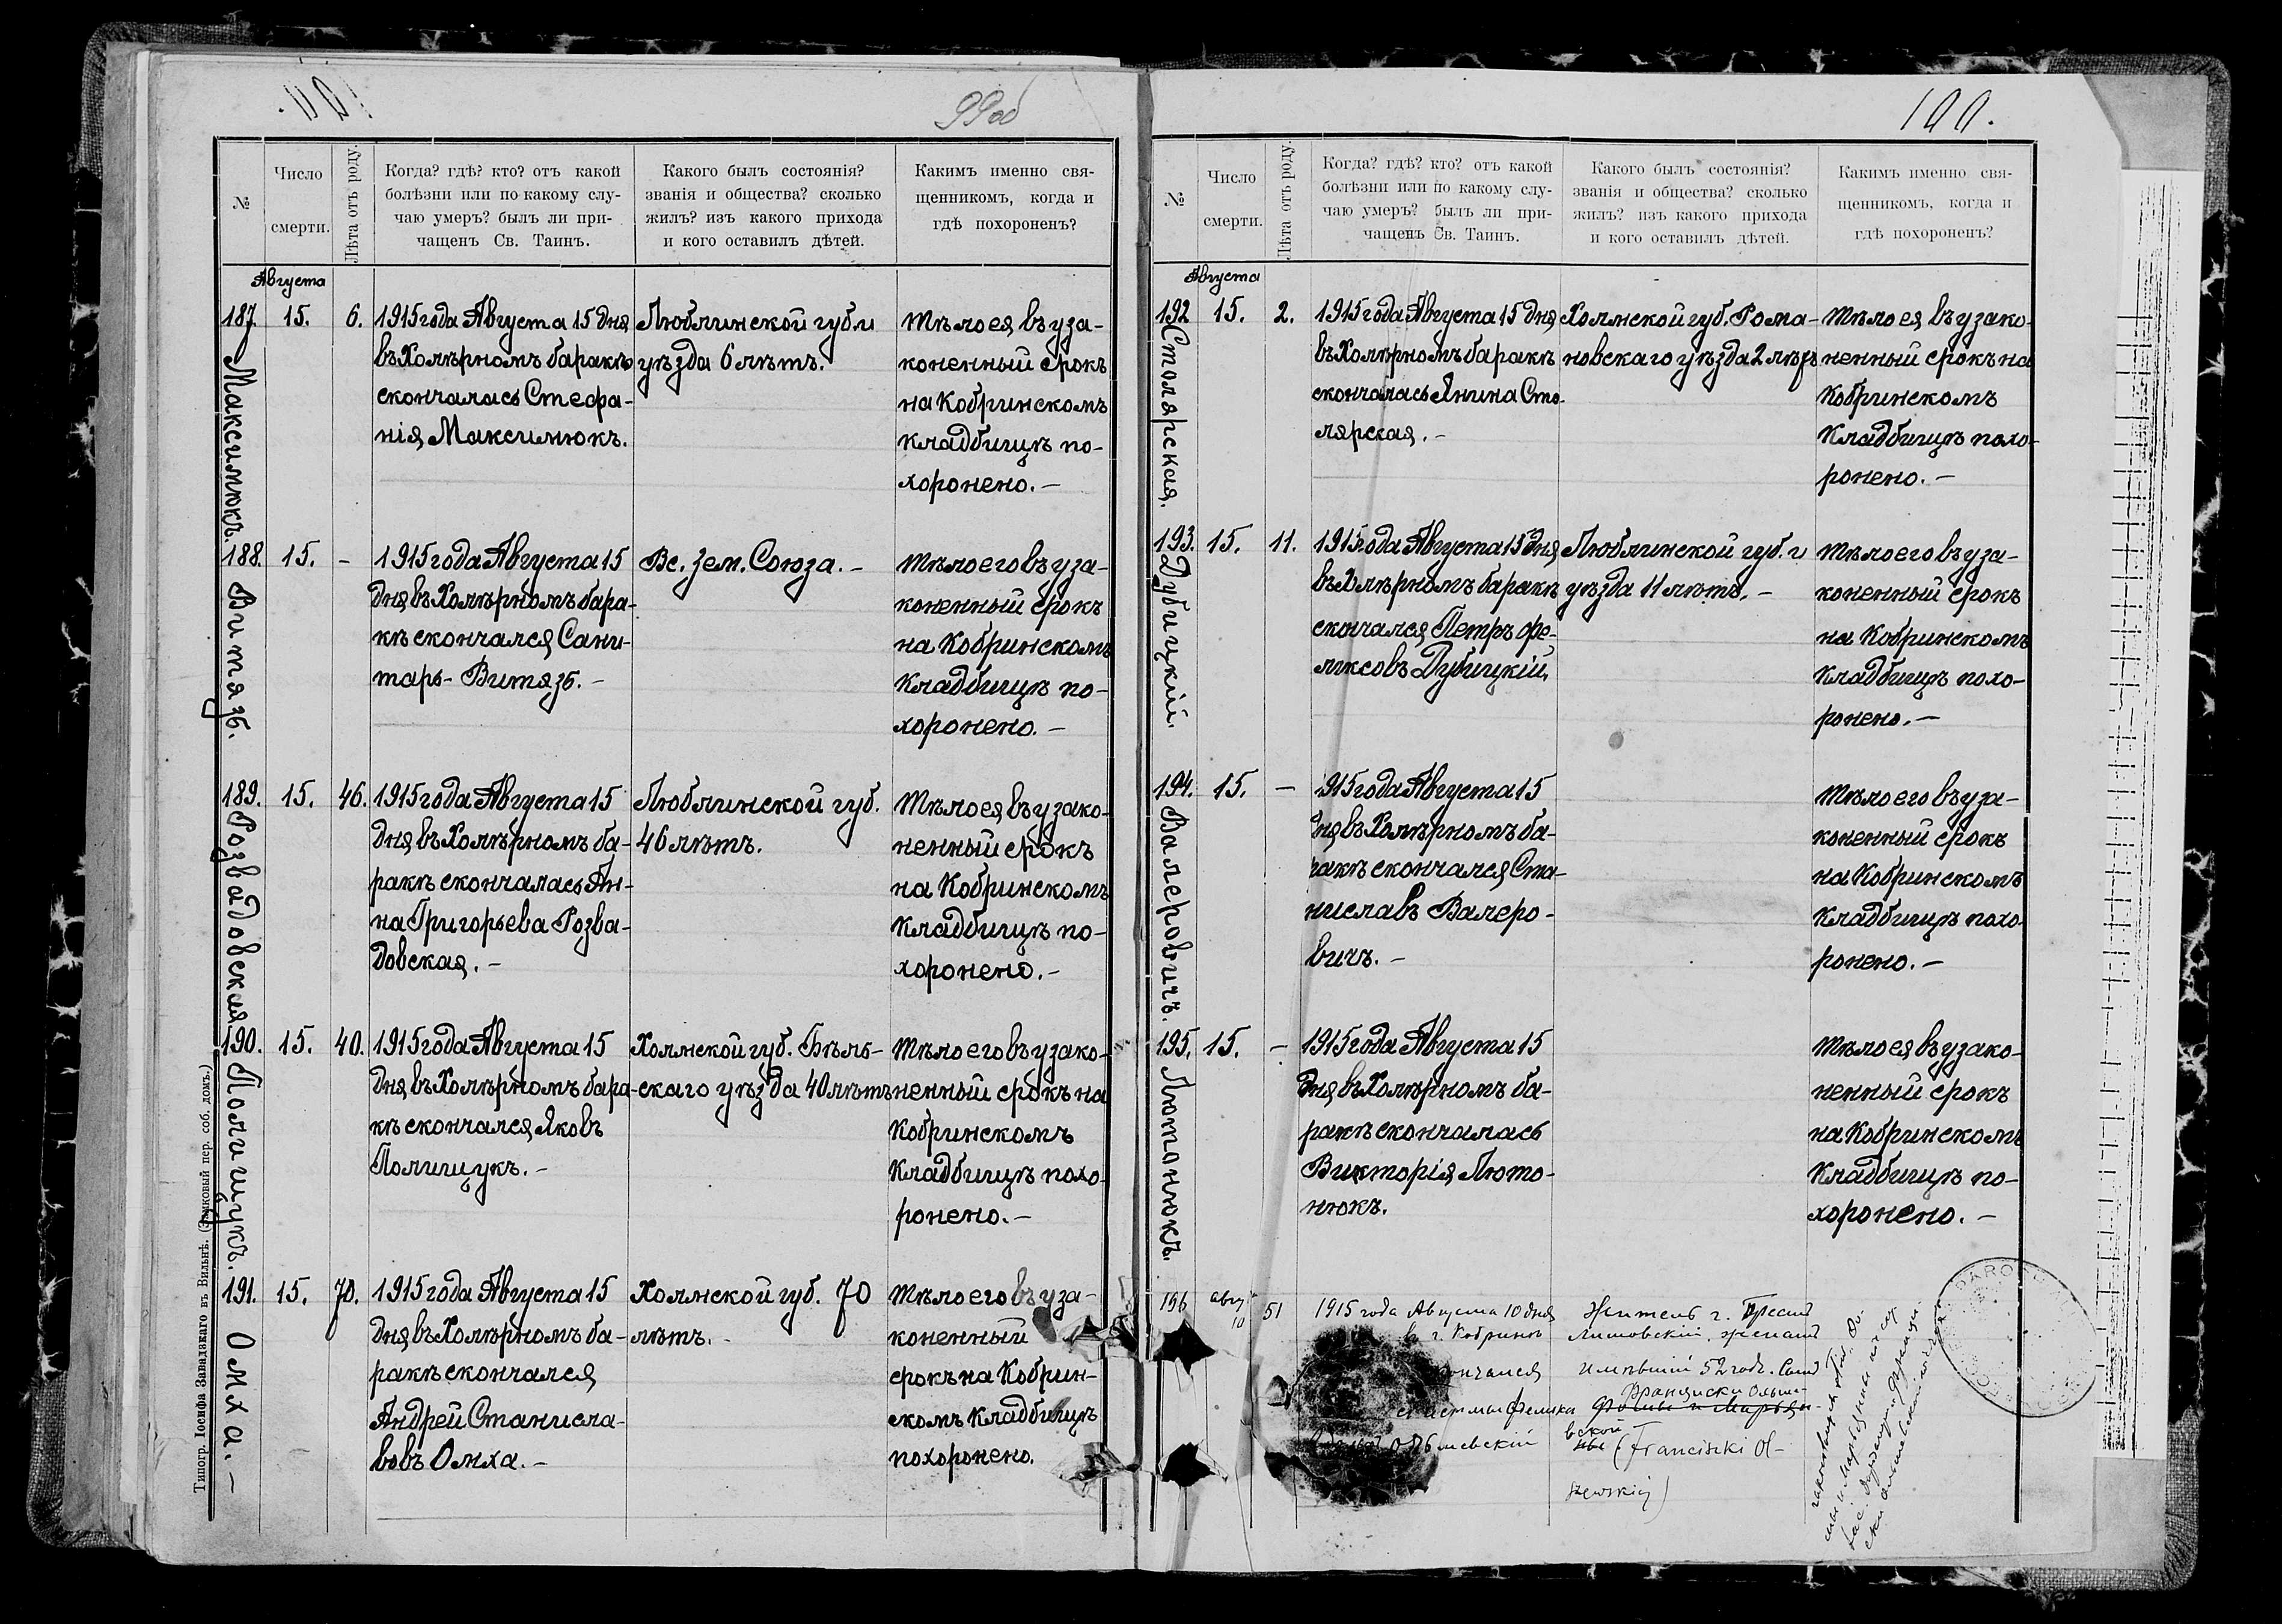 99об
№
Число
смерти.
Лѣта отъ роду.
Когда? гдѣ? кто? отъ какой
болѣзни или по какому слу-
чаю умеръ? былъ ли при-
чащенъ Св. Таинъ.
Какого былъ состоянія?
званія и общества? сколько
жилъ? изъ какого прихода
и кого оставилъ дѣтей.
Какимъ именно свя-
щенникомъ, когда и
гдѣ похороненъ?
Августа
187.
Максимюкъ.
15.
6.
1915 года Августа 15 дня
въ Холѣрномъ баракѣ
скончалась Стефа-
нія Максимюкъ.
Люблинской губ. и
уѣзда 6 лѣтъ.
Тѣло ея въ уза-
коненный срокъ
на Кобринскомъ
кладбищѣ по-
хоронено. –
188.
Витязь.
15.
–
1915 года Августа 15
дня въ Холѣрномъ бара-
кѣ скончался Сани-
таръ - Витязь. –
Вс. Зем. Союза. –
Тѣло его въ уза-
коненный срокъ
на Кобринскомъ
кладбищѣ по-
хоронено. –
189.
Розвадовская
15.
46.
1915 года Августа 15
дня въ Холѣрномъ ба-
ракѣ скончалась Ан-
на Григорьева Розва-
довская. –
Люблинской губ.
46 лѣтъ.
Тѣло ея въ узако-
ненный срокъ
на Кобринскомъ
кладбищѣ по-
хоронено. –
190.
Полищукъ.
15.
40.
1915 года Августа 15
дня въ Холѣрномъ бара-
кѣ скончался Яковъ
Полищукъ. –
Холмской губ. Бѣль-
скаго уѣзда 40 лѣтъ
Тѣло его въ узако-
ненный срокъ на
Кобринскомъ
кладбищѣ похо-
ронено. –
191.
Олха. –
15.
70.
1915 года Августа 15
дня въ Холѣрномъ ба-
ракѣ скончался
Андрей Станисла-
вовъ Олха. –
Холмской губ. 70
лѣтъ. –
Тѣло его въ уза-
коненный
срокъ на Кобрин-
скомъ кладбищѣ
похоронено.
Типогр. Іосифа Завадзкаго въ Вильнѣ. (Замковый пер. соб. домъ.)
100.
№
Число
смерти.
Лѣта отъ роду.
Когда? гдѣ? кто? отъ какой
болѣзни или по какому слу-
чаю умеръ? былъ ли при-
чащенъ Св. Таинъ.
Какого былъ состоянія?
званія и общества? сколько
жилъ? изъ какого прихода
и кого оставилъ дѣтей.
Какимъ именно свя-
щенникомъ, когда и
гдѣ похороненъ?
Августа
192
Столярская.
15.
2.
1915 года Августа 15 дня
въ Холѣрномъ баракѣ
скончалась Янина Сто-
лярская. –
Холмской губ. Рома-
новскаго уѣзда 2 лѣтъ
Тѣло ея въ узако-
ненный срокъ на
Кобринскомъ
кладбищѣ похо-
ронено. –
193.
Дубицкій.
15.
11.
1915 года Августа 15 дня
въ Холѣрномъ баракѣ
скончался Петръ Фе-
ликсовъ Дубицкій.
Люблинской губ. и
уѣзда 11 лѣтъ. –
Тѣло его въ уза-
коненный срокъ
на Кобринскомъ
кладбищѣ похо-
ронено. –
194.
Валеровичъ.
15.
–
1915 года Августа 15
дня въ Холѣрномъ ба-
ракѣ скончался Ста-
ниславъ Валеро-
вичъ. –
Тѣло его въ уза-
коненный срокъ
на Кобринскомъ
кладбищѣ похо-
ронено. –
195.
Лютонюкъ.
15.
–
1915 года Августа 15
дня въ Холѣрномъ ба-
ракѣ скончалась
Викторія Люто-
нюкъ.
Тѣло ея въ узако-
ненный срокъ
на Кобринскомъ
кладбищѣ по-
хоронено. –
196
авгу
10
51
1915 года Августа 10 дня
въ г. Кобринѣ
Житель г. Брестъ
Литовскій, женатъ
имѣвшій 52 годъ. Сынъ
Франциски Ольше-
вской
(Franciszki Ol-
szewskiej)